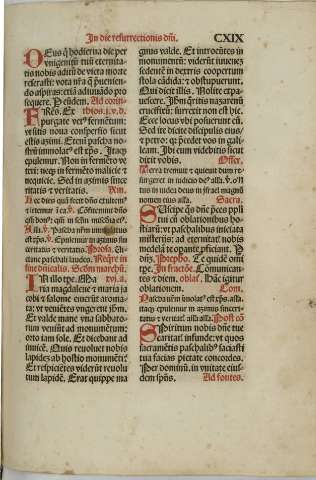 In die resurrectionis dñi. CXIX
DEus q̃ hodierna die per
vnigenitũ tuũ eternita-
tis nobis aditũ de victa morte
reserasti: vota nr̃a q̃ puenien-
do aspiras: etiã adiuuãdo pro
sequere. P eũdem. Ad corin-
FRes. Ex thios .j. v. d.
purgate vet9 fermentũ:
vt sitis noua conspersio sicut
estis azimi. Eteni pascha no-
strũ ĩmolat9 est xp̃s. Itaq3
epulemur. Non in fermẽto ve
teri: neq3 in fermẽto malicie &
nequicie. Sed in azimis since
ritatis & veritatis.
Hec dies quã fecit dñs exultem9
& letemur ĩ ea. Cõfitemini dño
Alla. Pascha nostrum immolat9
est xp̃s. Epulemur in azimis sin
ceritatis & veritatis. Prosa. Victi
me paschali laudes. Reqr̃e in
fine dñicalis. Scdm̃ marcũ.
IN illo tpe. Ma xvj. a
ria magdalene & maria ja
cobi & salome emerũt aroma-
ta: vt veniẽtes vngerent ihm̃.
Et valde mane vna sabbato-
rum veniũt ad monumẽtum:
orto iam sole. Et dicebant ad
inuicẽ. Quis reuoluet nobis
lapidẽ ab hostio monumẽti:
Et respiciẽtes viderũt reuolu
tum lapidẽ. Erat quippe ma
gnus valde. Et introeũtes in
monumentũ: viderũt iuuenẽ
sedentẽ in dextris coopertum
stola cãdida: & obstupuerunt.
Qui dicit illis. Nolite expa-
uescere. Ihm̃ q̃ritis nazarenũ
crucifixũ: surrexit non est hic.
Ecce locus vbi posuerunt eũ.
Sed ite dicite discipulis eius/
& petro: q3 precedet vos in gali-
leam. Ibi eum videbitis sicut
dixit vobis. Offer.
Terra tremuit & quieuit dum re-
surgeret in iudicio de9 alla. v. No
tus in iudea deus in israel magnũ
nomen eius alla. Sacra.
SUscipe q̃s dñe preces ppli
tui cũ oblationibus ho-
stiarũ: vt paschalibus iniciata
misterijs: ad eternitatis nobis
medelã te opãte pficiant. P
dñm. Prepho. Te quidẽ omi
tpe. In fractõe. Comunican-
tes & diem. oblat9. Hanc igitur
oblationem. Com.
Pascha nrm̃ ĩmolat9 est xp̃s. alla
itaq3 epulemur in azimis sinceri-
tatis & veritatis alla alla. Post cõ
SPiritum nobis dñe tue
caritat9 infunde: vt quos
sacramẽtis paschalib9 saciasti
tua facias pietate concordes.
Per dominũ. in vnitate eius-
dem spũs. Ad fontes.